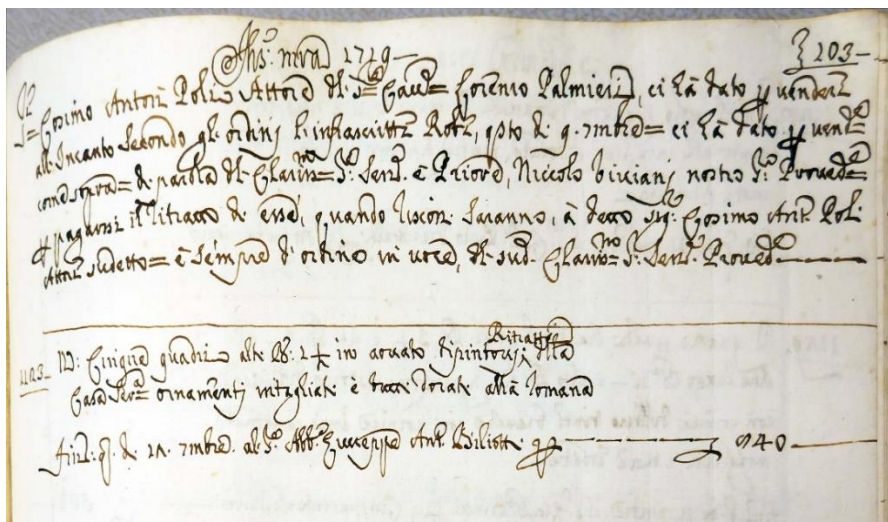 Jhs: mra 1719 203
Cosimo Antoni Poli Attore del Sr Cavre Lorenzo Palmieri, ci ha dato p vendere
all Incanto Secondo gl ordini l infrascritte Robe, qsto di 9. 7mbre= ci ha dato p vend=
come sopra= di parola del Clarmo= Sr Senre e Priore, Niccolo Viviani nostro Sr Proved=
p pagarsi il ritratto di esse, quando riscosse saranno, a detto Sigr Cosimo Ant: Poli
Attore sudetto= e sempre d'ordine in voce, del sud. Clarmo= Sr Senre Proved
Ritratti
1103. No: Cinque quadri alti Bª: 2 in ovato dipintovi della
Casa Serma ornamenti intagliati e tutti dorati alla romana
21. 7mbre. al Sr Abbe Giuseppe Ant: Biliotti p 940